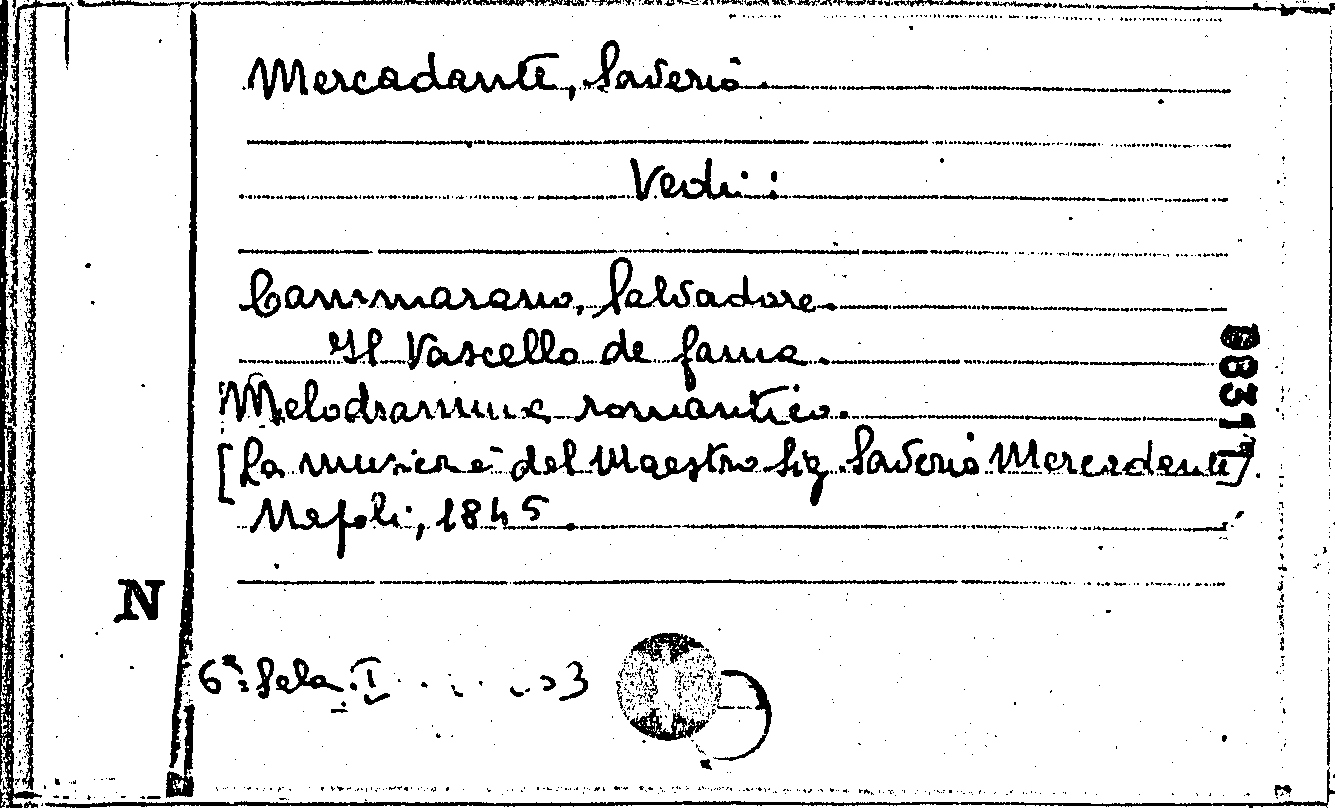 Mercadante, Saverio.
Vedi:
Cammarano, Salvadore.
Il Vascello de gama.
Melodramma romantico.
[La musica è del Maestro Sig. Saverio Mercadante].
Napoli, 1845.
08317
N
6ª Sala. I